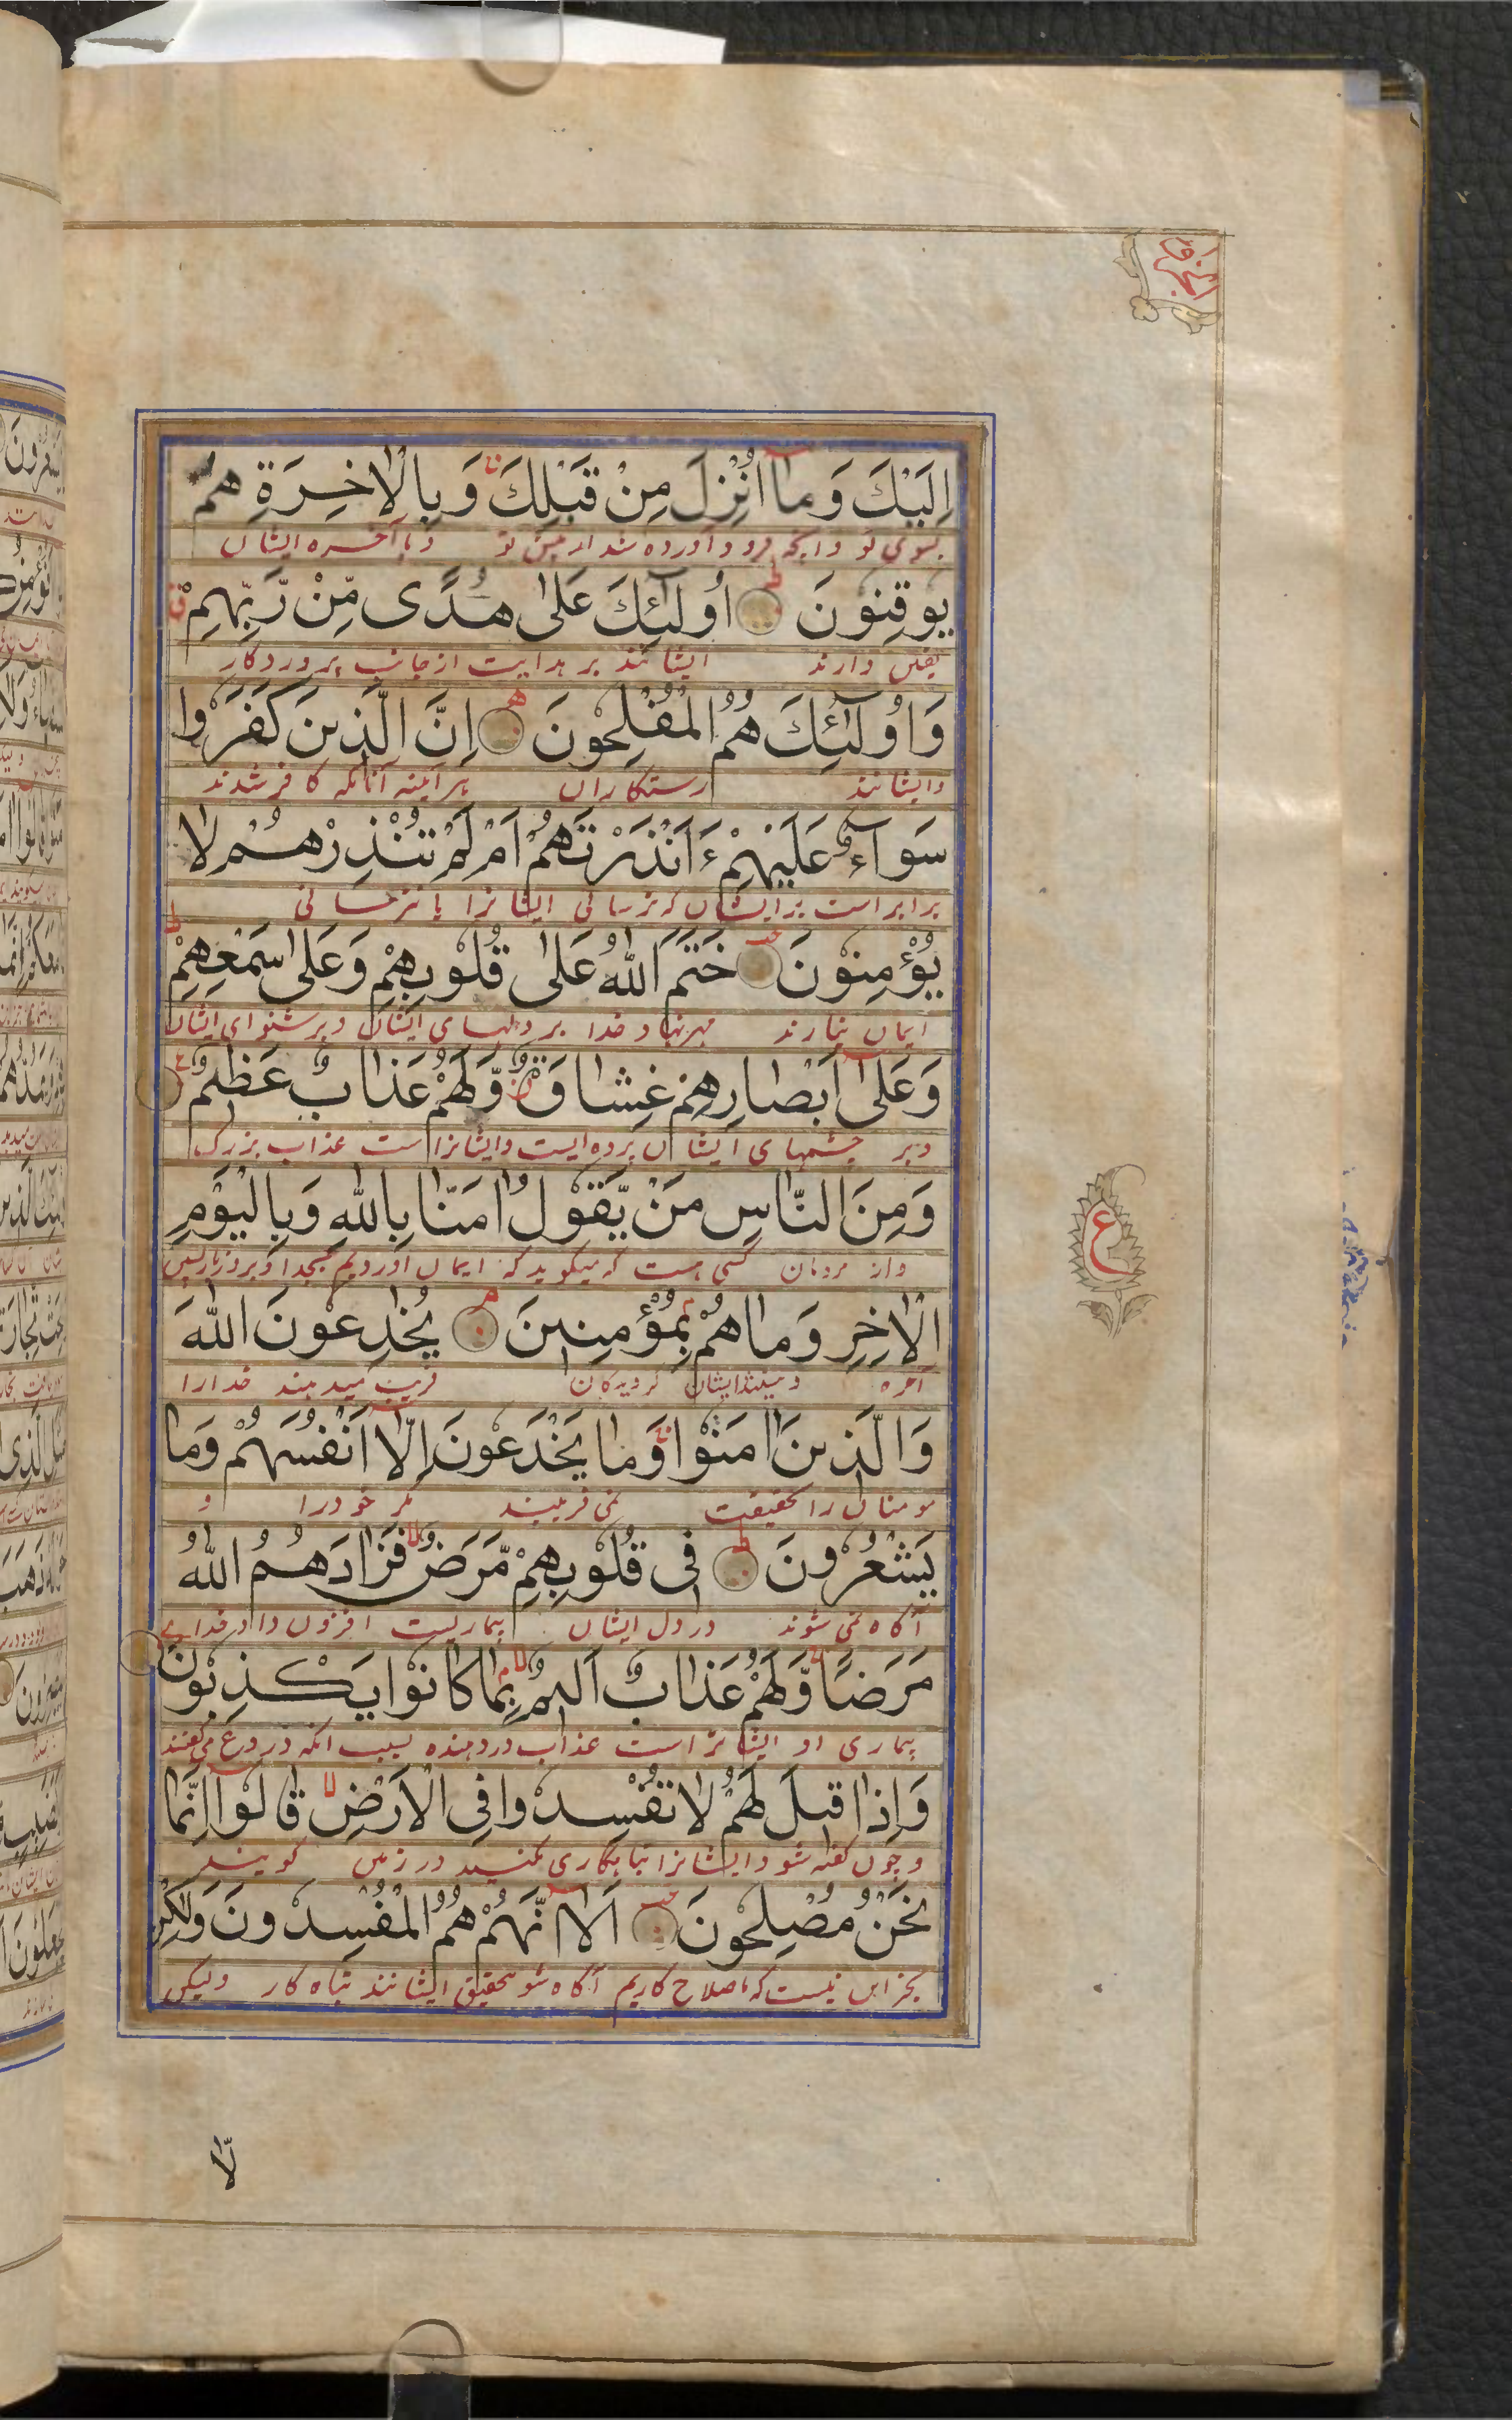 اِلَيْكَ وَمَا اُنْزِلَ مِنْ قَبْلِكَ وَبِالْاٰخِرَةِ هُمْ
بسوی تو وانچه فرود آورده شد از پیش تو وبا آخره ایشان
يُوقِنُونَ اُولٰٓئِكَ عَلٰى هُدًى مِّنْ رَّبِّهِمْ
یقین دارند ایشانند بر هدایت از جانب پروردگار
وَاُولٰٓئِكَ هُمُ الْمُفْلِحُونَ اِنَّ الَّذِينَ كَفَرُوا
وایشانند رستکاران هر آینه آنانکه کافر شدند
سَوَآءٌ عَلَيْهِمْ ءَاَنْذَرْتَهُمْ اَمْ لَمْ تُنْذِرْهُمْ لَا
برابر است بر ایشان که ترسانی ایشانرا یا نترسانی
يُؤْمِنُونَ خَتَمَ اللّٰهُ عَلٰى قُلُوبِهِمْ وَعَلٰى سَمْعِهِمْ
ایمان نیارند مهر نهاد خدا بر دلهای ایشان وبر شنوای ایشان
وَعَلٰٓى اَبْصَارِهِمْ غِشَاوَةٌ وَّلَهُمْ عَذَابٌ عَظِيمٌ
وبر چشمهای ایشان پرده ایست وایشانراست عذاب بزرک
وَمِنَ النَّاسِ مَنْ يَّقُولُ اٰمَنَّا بِاللّٰهِ وَبِالْيَوْمِ
واز مردمان کسی هست که میکوید که ایمان آوردیم بخدا وبروز بازپسین
الْاٰخِرِ وَمَا هُمْ بِمُؤْمِنِينَ يُخٰدِعُونَ اللّٰهَ
آخره ایشان کرویدکان فریب میدهند خدارا
وَالَّذِينَ اٰمَنُوا وَمَا يَخْدَعُونَ اِلَّا اَنْفُسَهُمْ وَمَا
مومنان را بحقیقت نمی فریبند مکر خودرا و
يَشْعُرُونَ فِى قُلُوبِهِمْ مَّرَضٌ فَزَادَهُمُ اللّٰهُ
آکاه نمی شوند در دل ایشان بیماریست افزون داد خدای
مَرَضًا وَّلَهُمْ عَذَابٌ اَلِيمٌ بِمَا كَانُوا يَكْذِبُونَ
بیماری او ایشانراست عذاب دردهنده بسبب انکه دروغ میکفتند
وَاِذَا قِيلَ لَهُمْ لَا تُفْسِدُوا فِى الْاَرْضِ قَالُوا اِنَّمَا
وچون کفته شود ایشانرا تباهکاری مکنید در زمین کویند
نَحْنُ مُصْلِحُونَ اَلَا اِنَّهُمْ هُمُ الْمُفْسِدُونَ وَلٰكِنْ
بجز این نیست که ما صلاح کاریم آکاه شو بتحقیق ایشانند تباه کار ولیکن
لَّا
ع